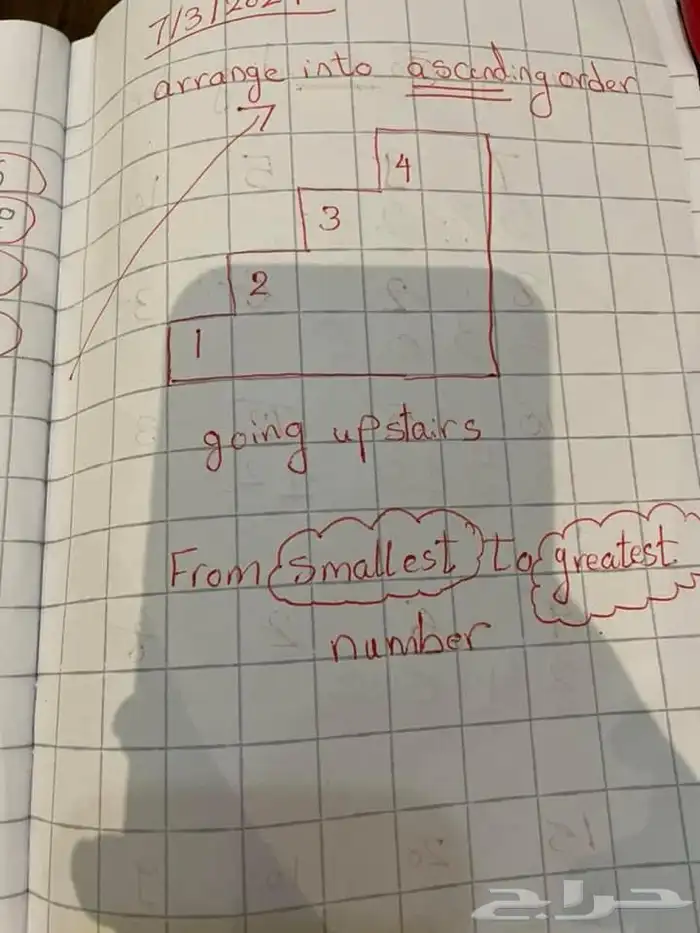 arrange into ascending order
4
3
2
1
going upstairs
From smallest to greatest
number
حراج